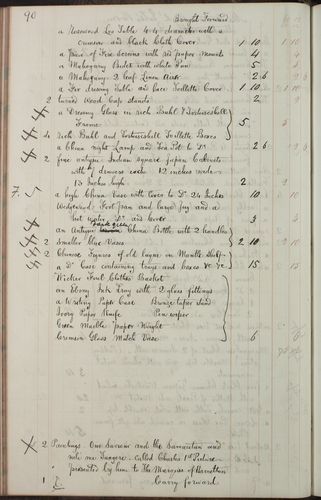 90
Brought Forward
a Rosewood Loo Table 4.4 diameter with a
crimson and black Cloth Cover 1 10
a pair of Fire Screens with red paper mounts 4
a Mahogany Bidet with white Pan 5
a Mahogany 2 leaf Linen Airer 2 6
a Fir dressing Table and lace Toilette Cover 1 10
2 turned Wood Cap stands 2
a Dressing Glass in rich Buhl & Tortoiseshell
Frame 5
4 Rich Buhl and Tortoiseshell Toilette Boxes
a China night Lamp and Tea Pot to Do 2 6
2 fine antique Indian square japan Cabinets
with drawers each 12 inches wide
13 inches high 2
a high China Vase with Cover to Do 24 Inches 10
Wedgwood Foot pan and large jug and a
hot water Do and Cover 3
an Antique dark green China Bottle with 2 handles
2 Smaller blue Vases 2 10
2 Chinese Figures of old lagar on Mantle Shelf
a Do Case containing trays and boxes &c &c 15
Wicker Foul Clothes Basket
an Ebony Ink Tray with 2 glass fittings
a Writing Paper Case Bronze taper Stand
Ivory Paper Knife Pen wiper
Green Marble paper Weight
Crimson Glass Match Vase 6
2 Paintings Our Saviour and the Samaritan and
noli me Tangere. called Charles 1st Picture
presented by him to the Marquis of Hamilton
Carry forward